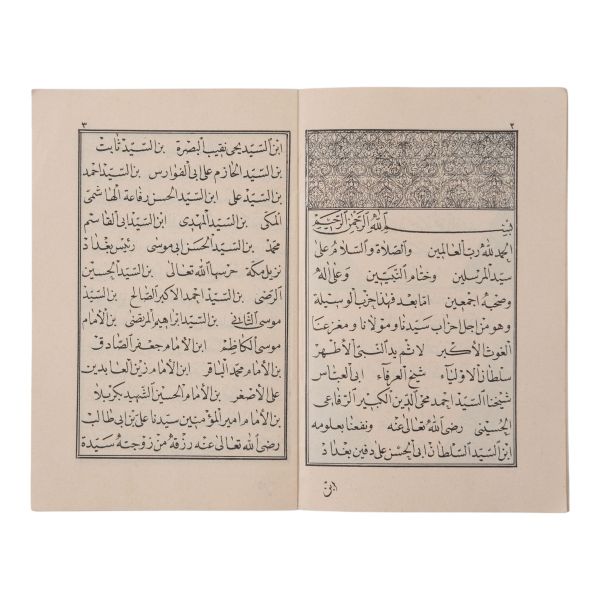 ٢
بسم الله الرحمن الرحيم
الحمد لله رب العالمين والصلاة والسلام على
سيد المرسلين وختام النبيين وعلى آله
وصحبه اجمعين امّا بعد فهذا حزب الوسيلة
وهو من اجل احزاب سيدنا ومولانا ومفزعنا
الغوث الأكبر لاثم يد النبى الأطهر
سلطان الاولياء شيخ العرفاء ابى العباس
شيخنا السيد احمد محيى الدين الكبير الرفاعى
الحسينى رضى الله تعالى عنه ونفعنا بعلومه
ابن السيد السلطان ابى الحسن على دفين بغداد
ابن
٣
ابن السيد يحيى نقيب البصرة بن السيد ثابت
بن السيد الحازم على ابى الفوارس بن السيد احمد
بن السيد على ابن السيد الحسن رفاعة الهاشمى
المكى بن السيد المهدى ابن السيد ابى القاسم
محمد بن السيد الحسن ابى موسى رئيس بغداد
نزيل مكة حرسها الله تعالى بن السيد الحسين
الرضى بن السيد احمد الاكبر الصالح بن السيد
موسى الثانى بن السيد ابراهيم المرتضى بن الأمام
موسى الكاظم ابن الأمام جعفر الصادق
بن الأمام محمد الباقر ابن الامام زين العابدين
على الأصغر بن الامام الحسين الشهيد بكربلا
بن الامام امير المؤمنين سيدنا على بن ابى طالب
رضى الله تعالى عنه رزقه من زوجته سيدة